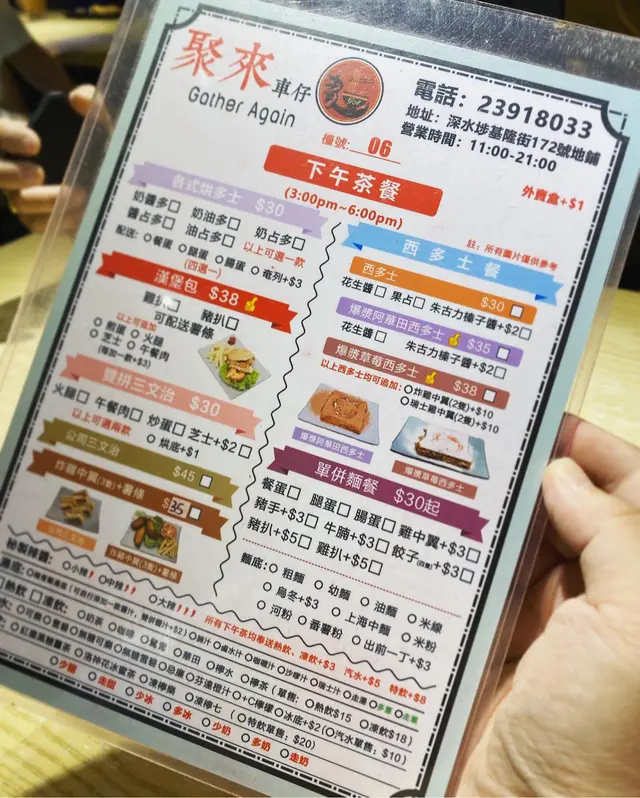 聚來 車仔
Gather Again
電話：23918033
地址：深水埗基隆街172號地鋪
營業時間：11:00-21:00
檯號: 06
下午茶餐
(3:00pm~6:00pm)
外賣盒+$1
各式烘多士 $30
奶醬多□ 奶油多□ 奶占多□
醬占多□ 油占多□ 以上可選一款
配送：○餐蛋 ○腿蛋 ○腸蛋 ○奄列+$3
(四選一)
漢堡包 $38
雞扒□ 豬扒□
可配送薯條
以上可追加
○煎蛋 ○火腿
○芝士 ○午餐肉
(每加一款+$3)
雙拼三文治 $30
火腿□ 午餐肉□ 炒蛋□ 芝士+$2□
以上可選兩款 ○烘底+$1
公司三文治 $45□
炸雞中翼(3隻)+薯條 $35□
炸雞中翼(3隻)+薯條
註：所有圖片僅供參考
西多士餐
西多士 $30□
花生醬□ 果占□ 朱古力榛子醬+$2□
爆漿阿華田西多士 $35□
花生醬□ 朱古力榛子醬+$2□
爆漿草莓西多士 $38□
以上西多士均可追加：○炸雞中翼(2隻)+$10
○瑞士雞中翼(2隻)+$10
爆漿阿華田西多士
爆漿草莓西多士
單併麵餐 $30起
餐蛋□ 腿蛋□ 腸蛋□ 雞中翼+$3□
豬手+$3□ 牛腩+$3□ 餃子(四隻)+$3□
豬扒+$5□ 雞扒+$5□
麵底：○粗麵 ○幼麵 ○油麵 ○米線
○烏冬+$3 ○上海中麵 ○米粉
○河粉 ○番薯粉 ○出前一丁+$3
秘製辣醬：○小辣 ○中辣 ○大辣
所有下午茶均奉送熱飲、凍飲+$3 汽水+$5 特飲+$8
□熱飲□凍飲：○奶茶 ○咖啡 ○鴛鴦 ○華田 ○檸水 ○檸茶（單售：○熱飲$15 ○凍飲$18)
○C檸檬 ○冰底+$2(○汽水單售：$10)
○洛神花冰蜜茶 ○凍檸樂 ○凍檸七（○特飲單售：$20)
○少甜 ○走甜 ○少冰 ○多冰 ○少奶 ○多奶 ○走奶